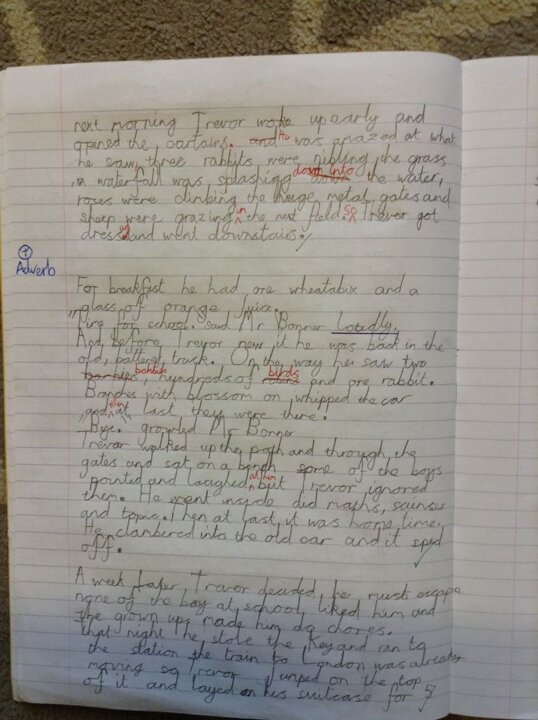 next morning Trevor woke up early and
opened the curtains. and He was amazed at what
he saw, three rabbits were nibling the grass
a waterfall was splashing down into the water,
roses were climbing the huge metal gates and
sheep were grazing in the next field. so Trevor got
dressed and went downstairs.
+
Adverb
For breakfast he had one wheatabix and a
glass of orange juice.
"Time for school." said Mr Bonner Loudly.
And before Trevor new it he was back in the
old, battered truck. On the way he saw two
hundreds of birds and one rabbit.
Branches with blossom on whipped the car
and then at last they were there.
"Bye." growled Mr Bonner
Trevor walked up the path and through the
gates and sat on a bench some of the boys
pointed and laughed at him but Trevor ignored
them. He went inside did maths, sciense
and topic. Then at last, it was home time,
He clambered into the old car and it sped
off.
A week later, Trevor decaded he must escape
none of the boy at school liked him and
the grown ups made him do chores.
that night he stole the key and ran to
the station the train to London was already
moving so Trevor jumped on the top
of it and layed on his suitcase for